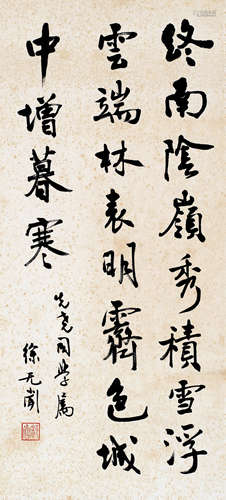 終南陰嶺秀積雪浮
雲端林表明霽色城
中增暮寒
先堯同學屬
徐无聞